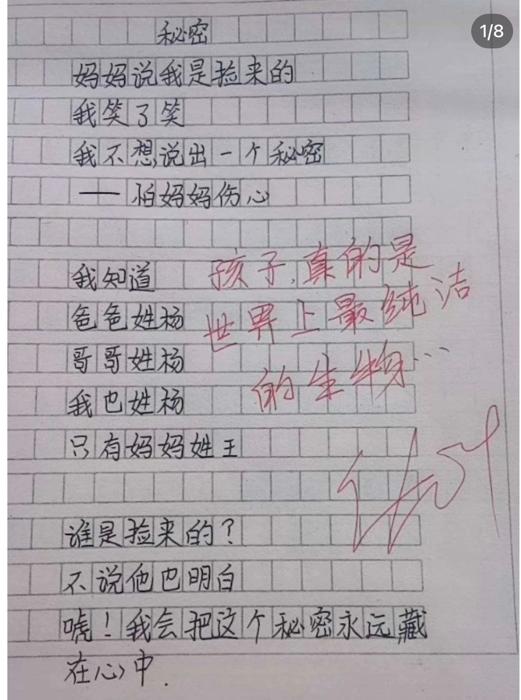 1/8
秘密
妈妈说我是捡来的
我笑了笑
我不想说出一个秘密
——怕妈妈伤心
我知道
爸爸姓杨
哥哥姓杨
我也姓杨
只有妈妈姓王
孩子,真的是
世界上最纯洁
的生物…
谁是捡来的?
不说他也明白
唬!我会把这个秘密永远藏
在心中.